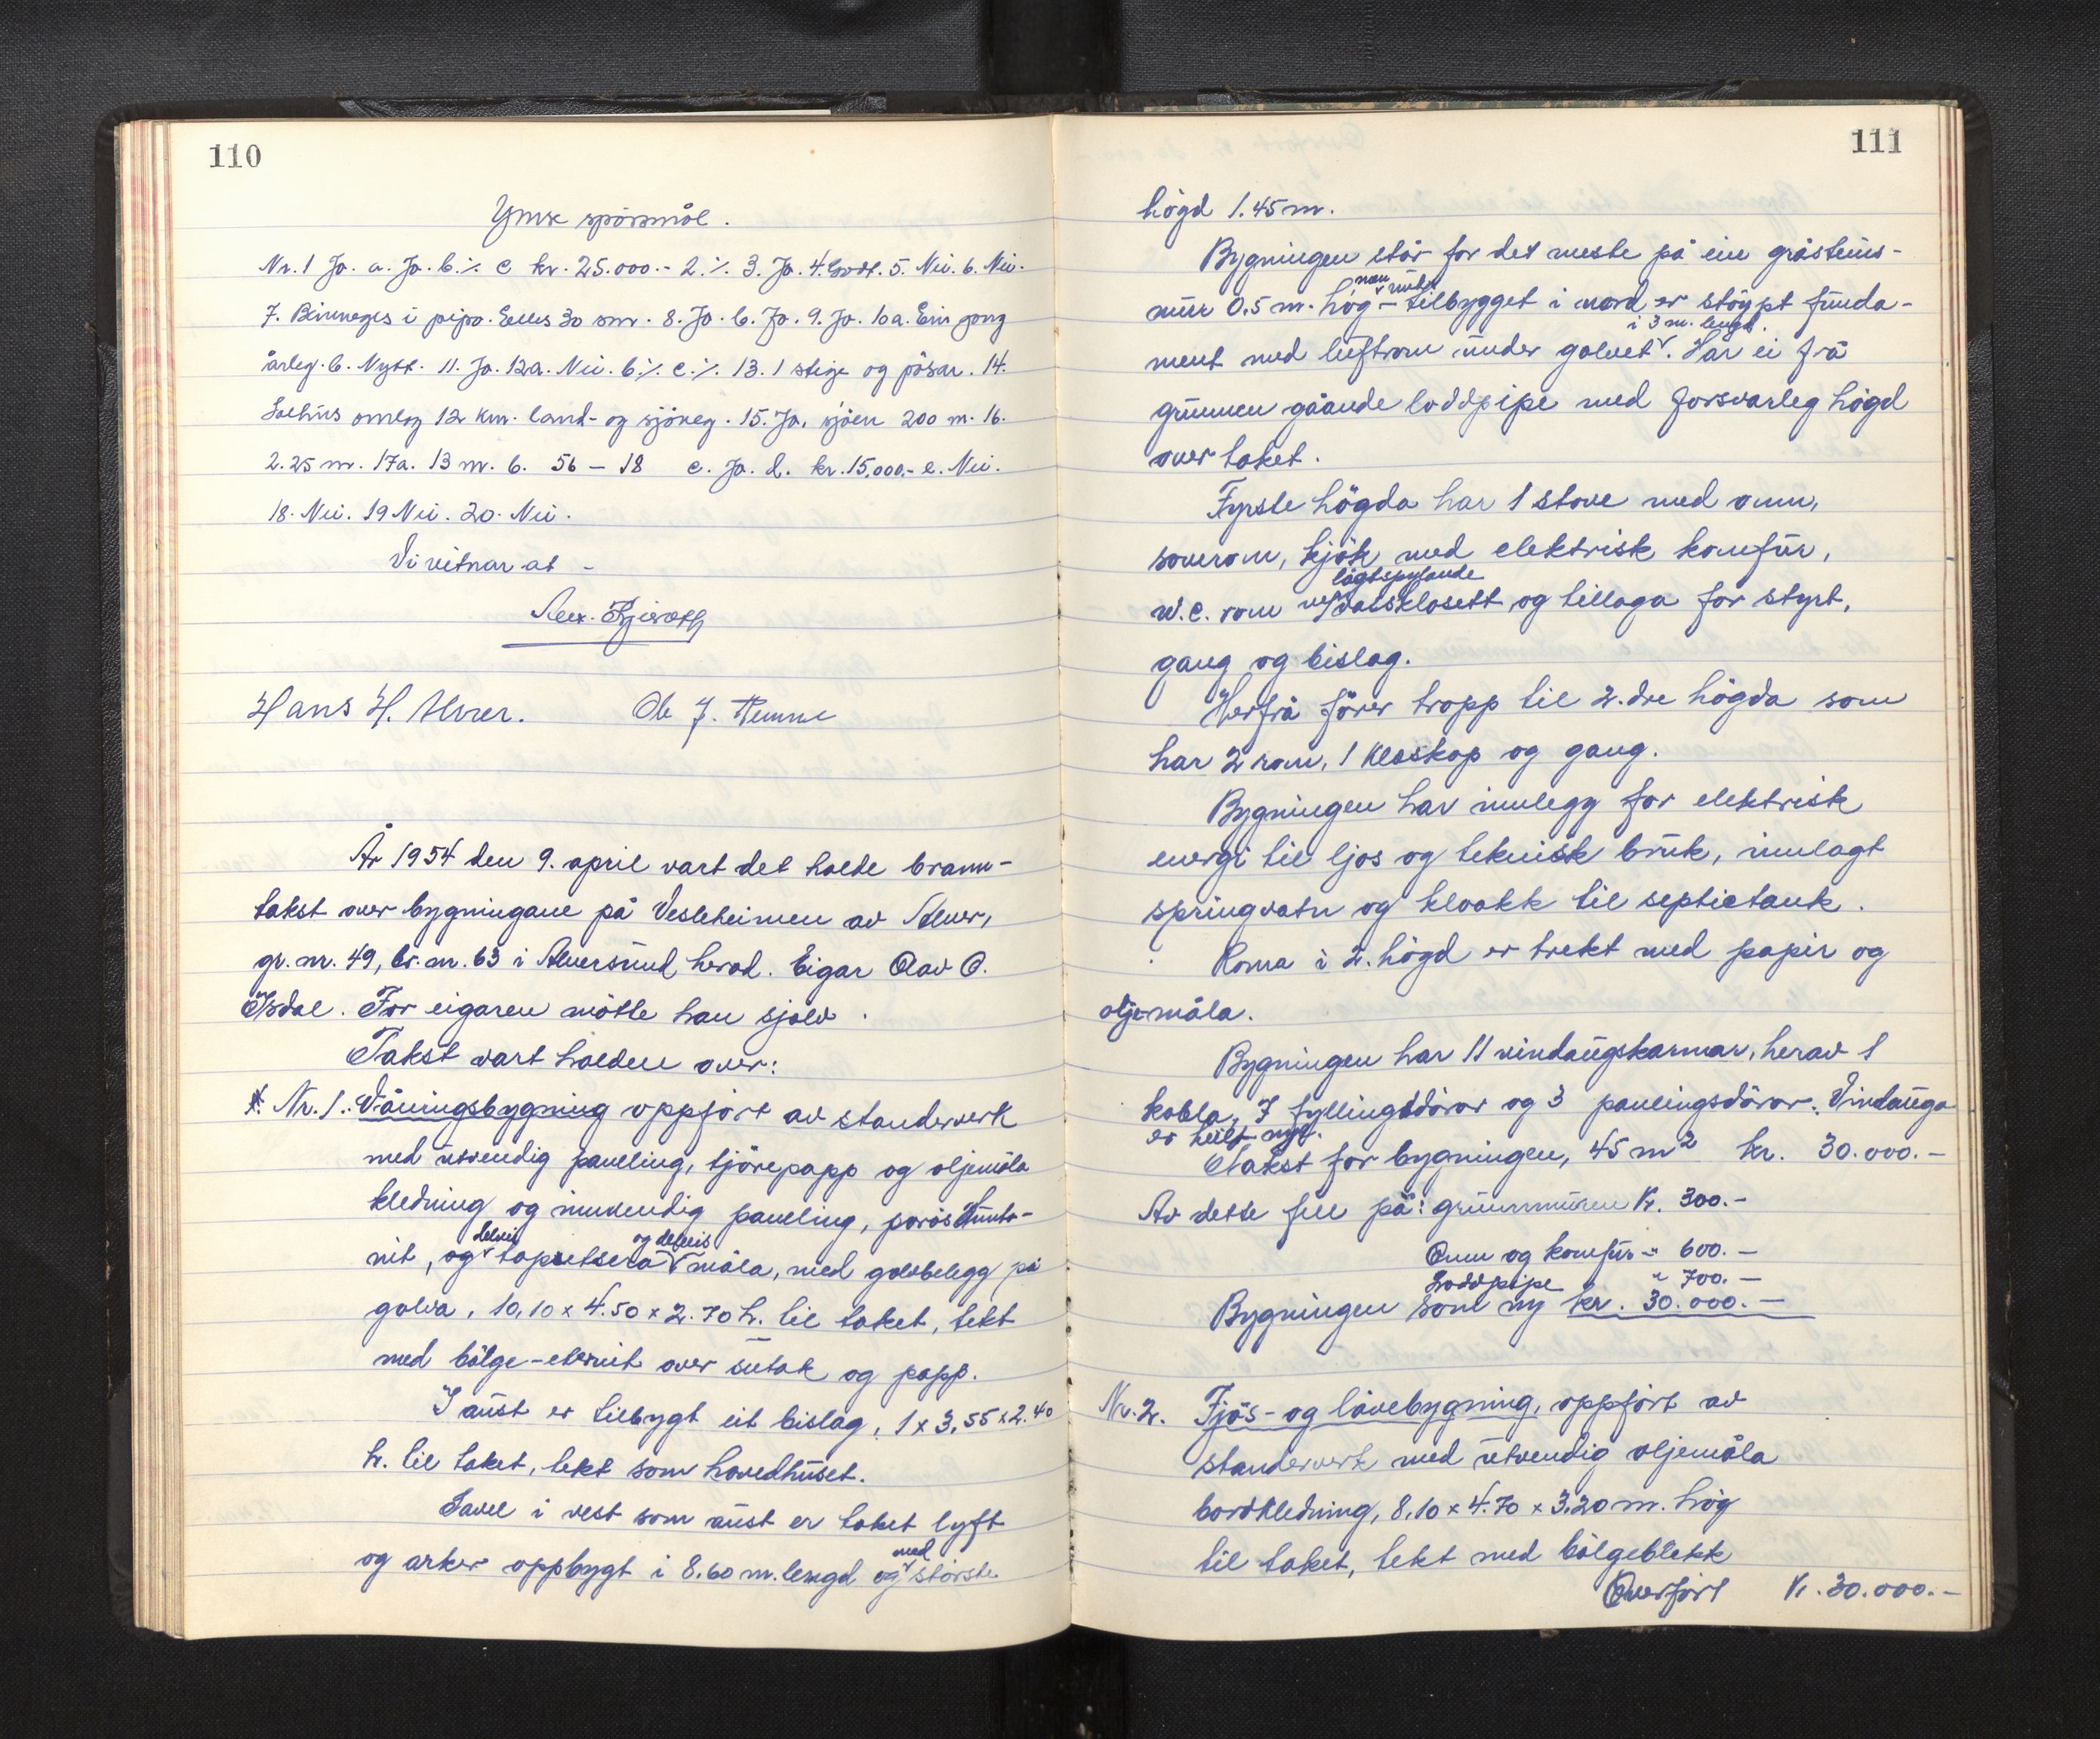 110
Ymse spörsmål.
Nr. 1 Ja. a. Ja. b. ·/. c kr. 25.000.- 2. ·/. 3. Ja. 4. Godt. 5. Nei. 6. Nei.
7. Binneges i pipa. Elles 30 sm. 8. Ja. b. Ja. 9. Ja. 10a. Ein gong
årleg. b. Nytt. 11. Ja. 12a. Nei. b ·/. c. ·/. 13. 1 stige og pösar. 14.
Salhus omlag 12 km. land- og sjöveg. 15. Ja, sjöen 200 m. 16.
2.25 m. 17a. 13 m. b. 56 – 18 c. Ja. d. kr. 15.000.- e. Nei.
18. Nei. 19 Nei. 20. Nei.
Vi vitnar at –
Alex. Kjeirath
Hans H. Alver. Ole J. Hemne
År 1954 den 9. april vart det halde brann-
takst over bygningane på Vesleheimen av Alver,
gr. nr. 49, br. nr. 63 i Alversund herad. Eigar Olav O.
Isdal. For eigaren mötte han sjølv.
Takst vart halden over:
Nr. 1. Våningsbygning oppfört av standerverk
med utvendig paneling, tjörepapp og oljemåla
kledning og innvendig paneling, porös Hunto-
nit, og delvis tapetsera og delvis måla, med golvbelegg på
golva, 10,10 x 4.50 x 2.70 h. til taket, tekt
med bölge-eternit over sutak og papp.
I aust er tilbygt eit bislag, 1 x 3,55 x 2.40
h. til taket, tekt som hovedhuset.
Savel i vest som aust er taket lyft
og arker oppbygt i 8.60 m. lengd og med största
111
högd 1.45 m.
Bygningen står for det meste på ein gråsteins-
mur 0.5 m. hög – tilbygget i nord er stöypt funda-
ment med luftrom under golvet i 3 m. lengd. Har ei frå
grunnen gåande loddpipe med forsvarleg högd
over taket.
Fyrste högda har 1 stove med omn,
soverom, kjök med elektrisk komfur,
w.c. rom m/ lågtspylande vatsklosett og tillaga for styrt,
gang og bislag.
Herfrå förer tropp til 2. dre högda som
har 2 rom, 1 kleskap og gang.
Bygningen har innlegg for elektrisk
energi til ljos og teknisk bruk, innlagt
springvatn og kloakk til septictank.
Roma i 2. högd er trekt med papir og
oljemåla.
Bygningen har 11 vindaugskarmar, herav 1
kobla, 7 fyllingsdörar og 3 panelingsdörar. Vindauga
er heilt nye.
Takst for bygningen, 45 m2 kr. 30.000.-
Av dette fell på: grunnmuren kr. 300.-
Omn og komfur - " 600.-
Loddpipe " 700.-
Bygningen som ny kr. 30.000.-
Nr. 2. Fjös- og lövebygning, oppfört av
standerverk med utvendig oljemåla
bordkledning, 8.10 x 4.70 x 3.20 m. hög
til taket, tekt med bölgeblekk
Overfört kr. 30.000.-